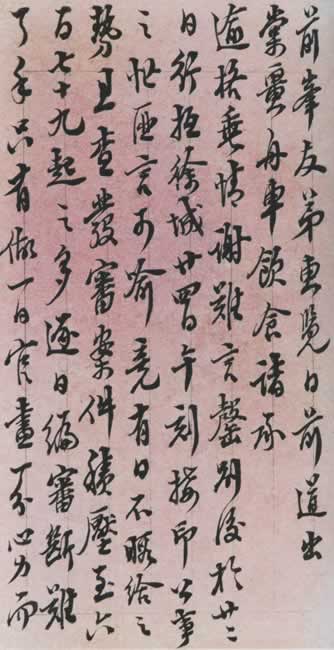 前峯友弟惠覽日前道出
棠畺舟車飲食諸承
逾格垂情謝難言罄別後於廿二
日行抵徐城廿四日午刻接印公事
之忙匪言可喻竟有日不暇給之
勢且查發審案件積壓至六
百七十九起之多逐日編審斷難
了手只有做一日官盡一分心力而